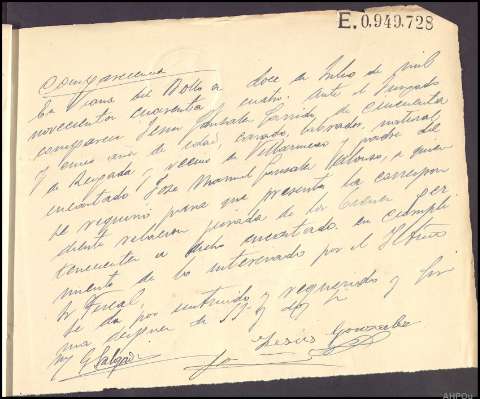 E.0.949.728
Comparecencia
En Viana del Bollo a doce de Julio de mil
novecientos cuarenta y cuatro. Ante el Juzgado
comparece Jesus Gonzalez Garrido, de cincuenta
y cinco años de edad, casado, labrador, natural
de Reigada, y vecino de Villarmeao y padre del
encartado Jose Manuel Gonzalez, a quien
se requirió para que presente la correspon
diente relacion jurada de los bienes per
tenecientes a dicho encartado en cumpli
miento de lo interesado por el Iltmo
Sr Fiscal,
Se da por enterado y requerido y fir
ma despues de S.S. y doy fe
Salgado
Jesús Gonzalez
AHPOu